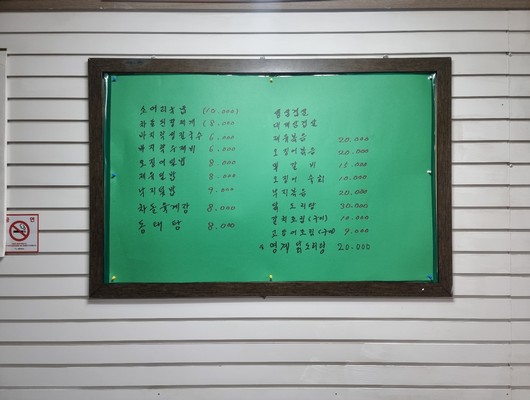 소머리국밥 (10.000)
차돌된장찌개 (8.000
바지락칼국수 6.000
바지락수제비 6.000
오징어덮밥 8.000
제육덮밥 8.000
낙지덮밥 9.000
차돌육개장 8.000
동태탕 8.000
생삼겹살
대패삼겹살
제육볶음 20.000
오징어볶음 20.000
닭갈비 15.000
오징어 숙회 10.000
낙지볶음 20.000
닭도리탕 30.000
갈치조림(구이) 10.000
고등어조림(구이) 9.000
영계 닭도리탕 20.000